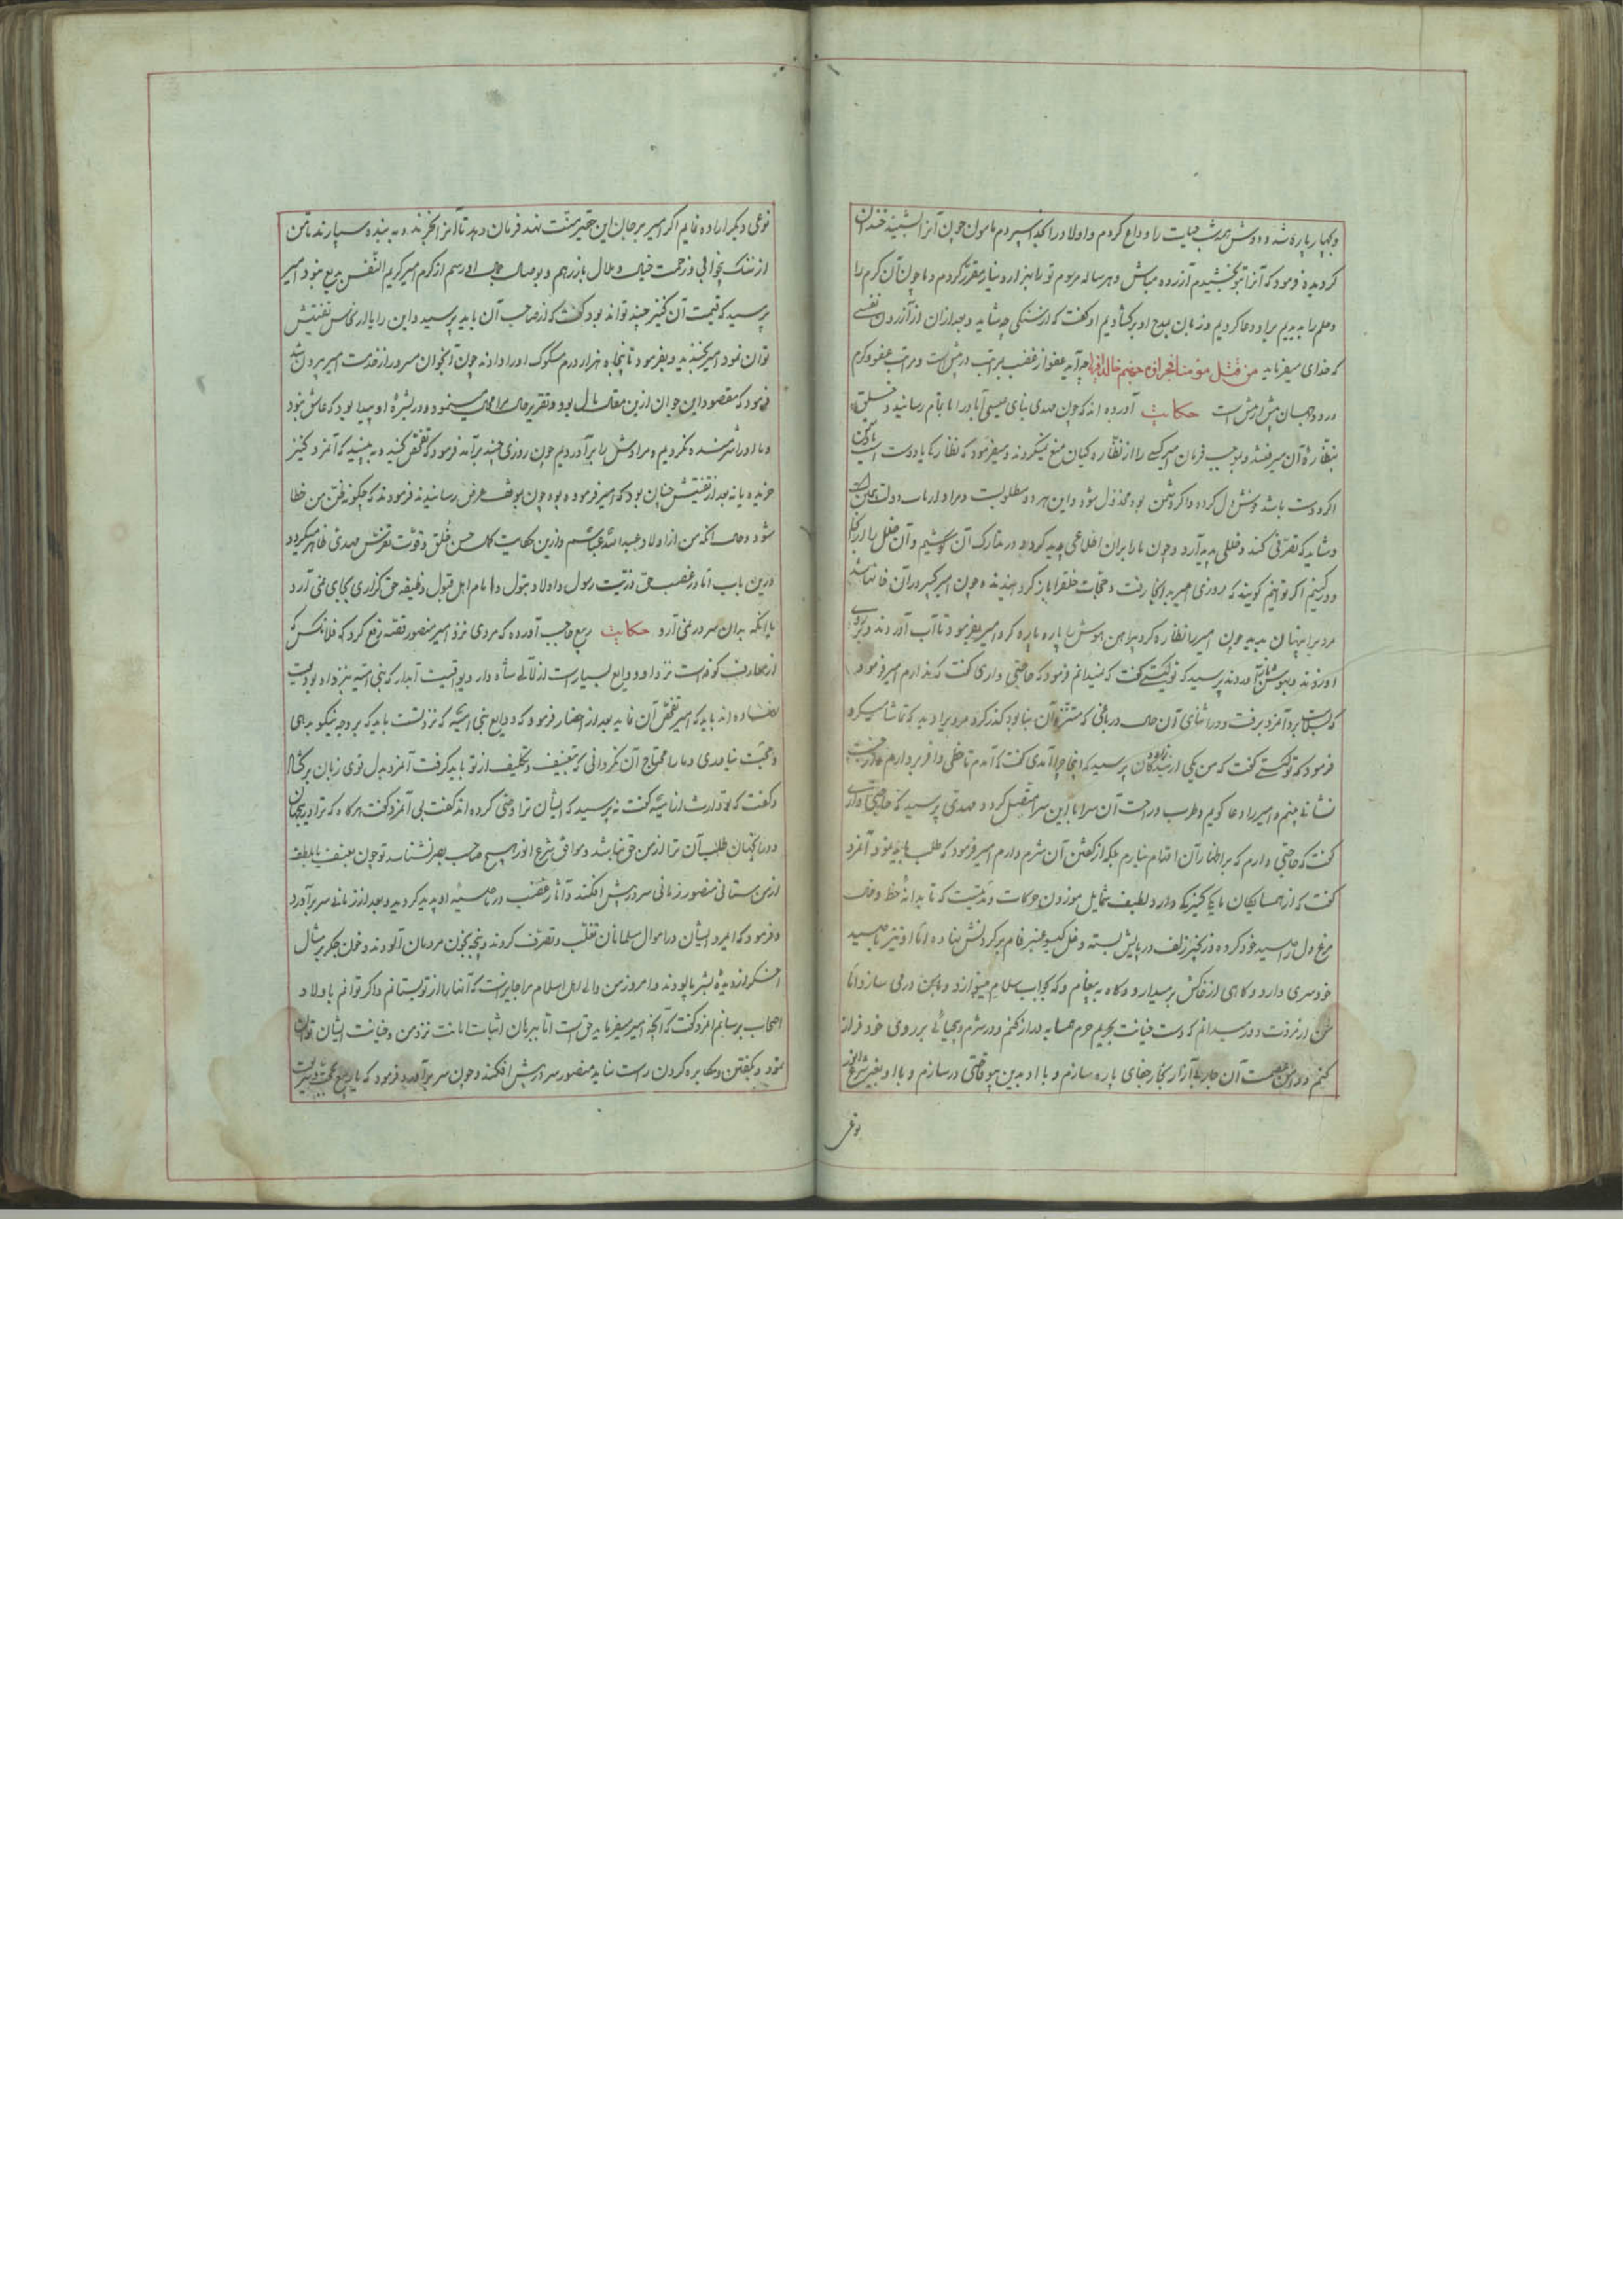 وبچهار پاره شد و دوش همه شب حیات را وداع کردم و اولاد را بخدا سپردم مامون چون آنرا بشنید خندان
کردیده فرمود که آنرا بتو بخشیدم آزرده مباش و هر ساله مرسوم تو را هزار دینار مقرر کردم و ما چون آن کرم را
و حلم را بدیدیم برو دعا کردیم و زبان بمدح او برکشادیم او کفت که از سنکی چه شاید و بعد از ان از آزردن نفسی
که خدای میفرماید من قتل مؤمنا فجزاؤه جهنم خالدا فیها چه آید عفو از غضب بمراتب در پیش است و مراتب عفو و کرم
درود و احسان بیش از بیش است حکایت آورده اند که چون مهدی بنای عیسی آباد را باتمام رسانید و خلق
بنظاره آن میرفتند و بموجب فرمان امیر کسی را از نظاره کیان منع نمیکردند و میفرمود که نظارکی یا دوست است یا دشمن
اکر دوست باشد خوش دل کردد و اکر دشمن بود مخذول شود و این هر دو مطلوبست و مراد ارباب دولت
و شاید که تصرفی کند و خللی پدید آرد و چون ما را بران اطلاعی پدید کردد در تدارک آن کوشیم و آن خلل را
دور کنیم اکر توانیم کویند که روزی امیر بدانجا رفت و حجاب خلق را باز کردانیدند و چون امیر کبیر در آن خانها شد
مردیرا پنهان بدید چون امیر را نظاره کرد پیراهن هوش را پاره پاره کرد امیر بفرمود تا آب آوردند و بروی
او زدند و بهوش باز آوردند پرسید که تو کیستی کفت که نمیدانم فرمود که حاجتی داری کفت که ندارم امیر فرمود
که بسلامت برو آنمرد برفت و در اثنای آن حال در باغی که متنزه آن بنا بود کذر کرد مردیرا دید که تماشا میکرد
فرمود که تو کیستی کفت که من یکی از بنده زادکان پرسید که اینجا چرا آمدی کفت که آمدم تا حظی وافر بردارم
نشانی بینم و امیر را دعا کویم و طرب و راحت آن سرا باین سرا متصل کردد مهدی پرسید که حاجتی داری
کفت که حاجتی دارم که بر اظهار آن اقدام نیارم بلکه از کفتن آن شرم دارم امیر فرمود که طلب باید نمود آنمرد
کفت که از همسایکان ما یکی کنیزکی دارد لطیف شمایل موزون حرکات و مدتیست که تا بدانه خط و خال
مرغ دل مرا صید خود کرده و زنجیر زلف در پایش بسته و غل کیسو عنبر فام بر کردنش نهاده اما او نیز با صید
خود سری دارد و کاهی از خاکش بر میدارد و کاه به پیغام و که بجواب سلام مینوازد و با من در می سازد اما
من از مروت دور میدانم که دست خیانت بحریم حرم همسایه دراز کنم و در شرم و بیحیائی بر روی خود فراز
کنم و دامن عصمت آن جاریه را آزار بخار جفای پاره سازم و با او بدین بیوقتی درسازم و با او بغیر شرع انور
نوعی
نوعی دیکر اراده نمایم اکر امیر بر جان این حقیر منت نهد فرمان دهد تا آنرا بخرند و به بنده سپارند تا من
از ننک بیخوابی و زحمت خیال و ملال باز رهم و بوصال او رسم از کرم امیر کریم النفس بدیع نبود امیر
پرسید که قیمت آن کنیز چند تواند بود کفت که از صاحب آن باید پرسید و این را با از کس تفتیش
توان نمود امیر بخندید و بفرمود تا پنجاه هزار درم مسکوک او را دادند چون آنجوان مسرور از خدمت امیر بیرون شد
فرمود که مقصود این جوان ازین مقال مال بود و تقریر حال مینمود و در بشره او پیدا بود که عاشق نبود
و ما او را شرمنده نکردیم و مرادش را برآوردیم چون روزی چند برآمد فرمود که تفحص کنید و به بینید که آنمرد کنیز
خریده یا نه بعد از تفتیش چنان بود که امیر فرموده بود چون بموقف عرض رسانیدند فرمودند که چکونه ظن من خطا
شود و حال آنکه من از اولاد عبد الله عباسم و ازین حکایت کمال حسن خلق و قوت تفرس مهدی ظاهر میکردد
درین باب اما در غصب حق ذریت رسول و اولاد بتول و امام اهل قبول وظیفه حق کزاری بجای نمی آرد
با آنکه بدان سر در نمی آرد حکایت ربیع حاجب آورده که مردی نزد امیر منصور قصه رفع کرد که فلانکس که
از معارف کوفه است نزد او ودایع بسیار است از لآلی شاه وار و یواقیت آبدار که بنی امیه بنزد او بودیعت
نهاده اند باید که امیر تفحص آن نماید بعد از احضار فرمود که ودایع بنی امیه که نزد تست باید که بر وجه نیکو بدهی
و بمحبت بنیامدی و ما را محتاج آن نکردانی که بتعنیف و تکلیف از تو باید کرفت آنمرد بدل قوی زبان برکشاد
و کفت که تو وارث بنی امیه کفت نه پرسید که ایشان ترا وصی کرده اند کفت نی آنمرد کفت هرکاه که ترا درینجهان
و در آنجهان طلب آن ترا از من حق نباشد و موافق شرع انور هیچ صاحب بصر نشناسد تو چون بعنف یا بلطف
از من ستانی منصور زمانی سر در پیش افکند و آثار غضب در ناصیه او پدید کردید و بعد از زمانی سر برآورد
و فرمود که ایمرد ایشان در اموال مسلمانان تغلب و تصرف کردند و پنجه بخون مردمان آلودند و خون جکر بر مثال
اشک از دیده بشر پالودند و امروز من والی اهل اسلام مرا جایز است که آنها را از تو بستانم و اکر توانم باولاد و
اصحاب برسانم آنمرد کفت که آنچه امیر میفرماید حق است اما ببرهان اثبات امانت نزد من و خیانت ایشان توان
نمود و بکفتن و مکابره کردن راست نیاید منصور سر در پیش افکند و چون سر برآورد فرمود که یا ربیع